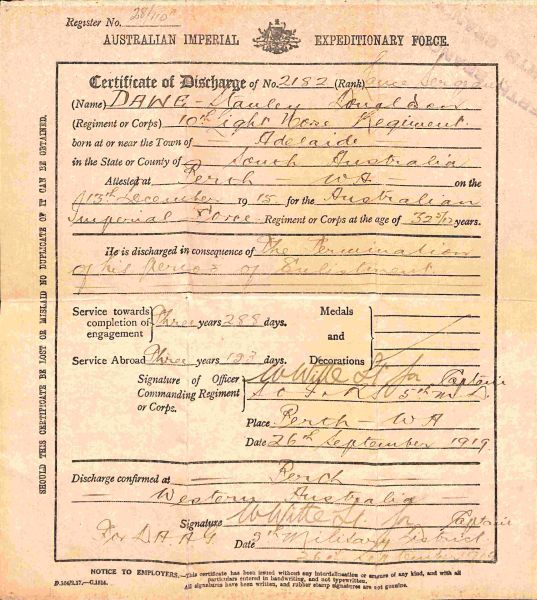 Register No. 28/110
AUSTRALIAN IMPERIAL EXPEDITIONARY FORCE.
Certificate of Discharge of No. 2182 (Rank) Lance Sergeant
(Name) DAWE - Stanley Donaldson
(Regiment or Corps) 10th Light Horse Regiment
born at or near the Town of Adelaide
in the State or County of South Australia
Attested at Perth W A on the
13th December 1915 for the Australian
Imperial Force Regiment or Corps at the age of 32 years.
He is discharged in consequence of The Termination
of his Period of Enlistment
Service towards completion of engagement Three years 288 days.
Medals and Decorations
Service Abroad Three years 123 days.
Signature of Officer Commanding Regiment or Corps. Captain
5th M D
Place Perth - W A
Date 26th September 1919.
Discharge confirmed at Perth
Western Australia
Signature Captain
For D A A G 5th Military District
Date 26th September 1919
NOTICE TO EMPLOYERS.—This certificate has been issued without any interlineation or erasure of any kind, and with all
particulars entered in handwriting, and not typewritten.
All signatures have been written, and rubber stamp signatures are not genuine.
SHOULD THIS CERTIFICATE BE LOST OR MISLAID NO DUPLICATE OF IT CAN BE OBTAINED.